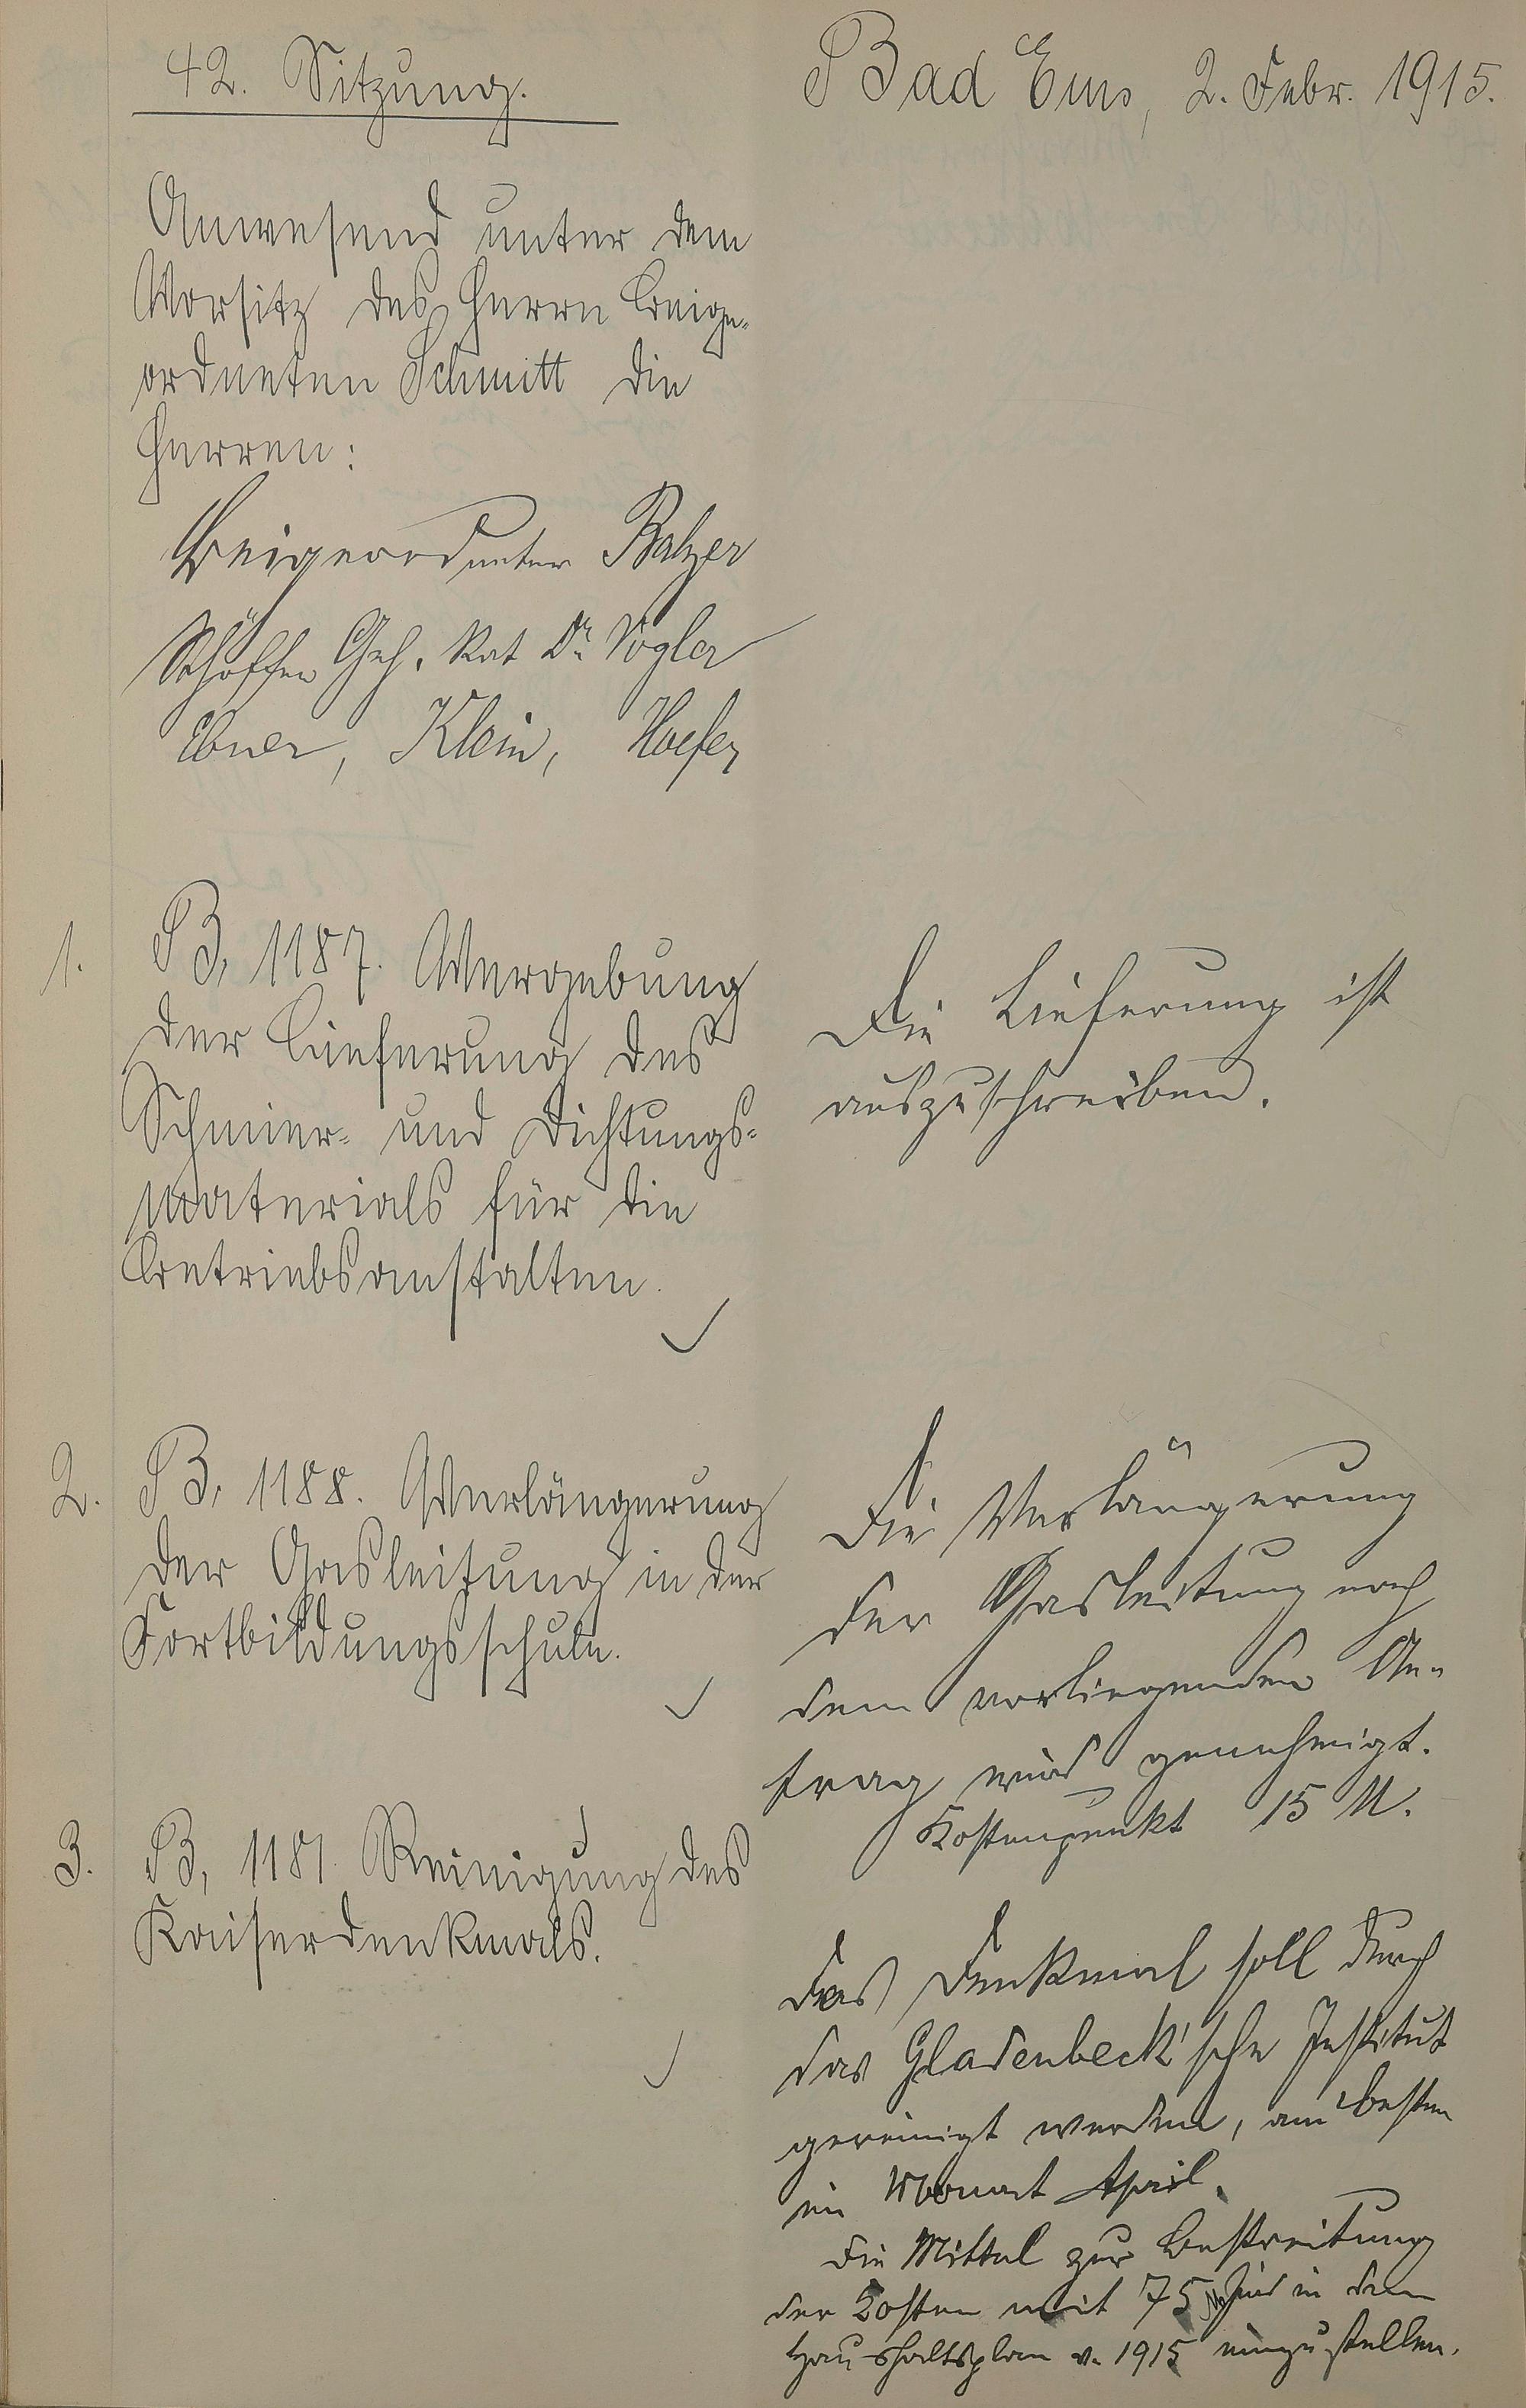 42. Sitzung.
Bad Ems, 2. Febr. 1915.
Anwesend unter dem
Vorsitz des Herrn Beige-
ordneten Schmitt die
Herren:
Beigeordneter Balzer
Schöffen Geh. Rat Dr. Vogler
Ebner, Klein, Hoefer
1. B, 1187. Vergebung
der Lieferung des
Schmier- und Dichtungs-
materials für die
Betriebsanstalten.
Die Lieferung ist
auszuschreiben.
2. B, 1188. Verlängerung
der Gasleitung in der
Fortbildungsschule.
Die Verlängerung
der Gasleitung nach
dem vorliegenden An-
trag wird genehmigt.
Kostenpunkt 15 M.
3. B, 1181 Reinigung des
Kaiserdenkmals.
Das Denkmal soll durch
das Gladenbeck'sche Institut
gereinigt werden, am besten
im Monat April.
Die Mittel zur Bestreitung
der Kosten mit 75 M sind in dem
Haushaltsplan v. 1915 einzustellen.